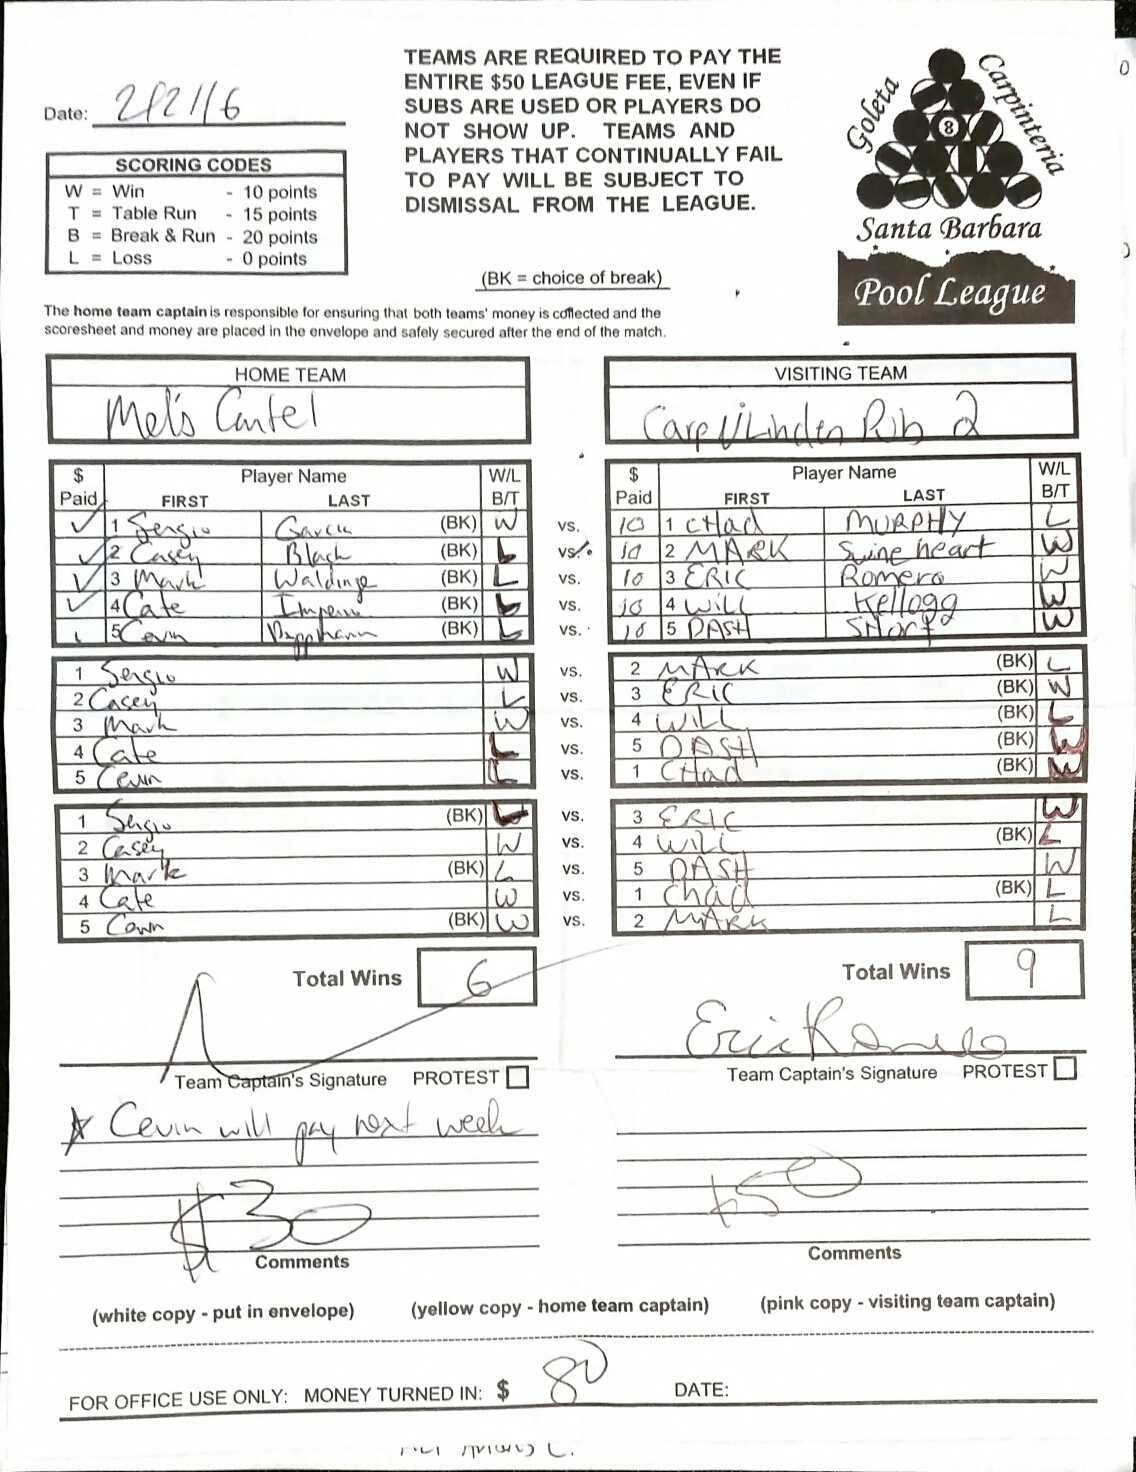 TEAMS ARE REQUIRED TO PAY THE
ENTIRE $50 LEAGUE FEE, EVEN IF
SUBS ARE USED OR PLAYERS DO
NOT SHOW UP. TEAMS AND
PLAYERS THAT CONTINUALLY FAIL
TO PAY WILL BE SUBJECT TO
DISMISSAL FROM THE LEAGUE.
Date:
SCORING CODES
W = Win - 10 points
T = Table Run - 15 points
B = Break & Run - 20 points
L = Loss - 0 points
(BK = choice of break)
Goleta
Carpinteria
8
Santa Barbara
Pool League
The home team captain is responsible for ensuring that both teams' money is collected and the
scoresheet and money are placed in the envelope and safely secured after the end of the match.
HOME TEAM VISITING TEAM
Mel's Cartel Linden Pub 2
$ Player Name W/L $ Player Name W/L
Paid FIRST LAST B/T Paid FIRST LAST B/T
1 Sergio Garcia (BK) W vs. 10 1 CHad MURPHY L
2 Casey Black (BK) L vs. 10 2 MARK Swineheart W
3 Mark (BK) L vs. 10 3 ERIC Romero W
4 Cate (BK) L vs. 10 4 WiLL Kellogg W
5 Cevin (BK) L vs. 10 5 DASH SHort W
1 Sergio W vs. 2 MARK (BK) L
2 Casey L vs. 3 ERIC (BK) W
3 Mark W vs. 4 WiLL (BK) L
4 Cate L vs. 5 DASH (BK) W
5 Cevin L vs. 1 CHad (BK) W
1 Sergio (BK) L vs. 3 ERIC W
2 Casey W vs. 4 WiLL (BK) L
3 Mark (BK) L vs. 5 DASH W
4 Cate W vs. 1 Chad (BK) L
5 (BK) W vs. 2 MARK L
Total Wins 6 Total Wins 9
Eric Romero
Team Captain's Signature PROTEST Team Captain's Signature PROTEST
Cevin will pay next week
$30 $50
Comments Comments
(white copy - put in envelope) (yellow copy - home team captain) (pink copy - visiting team captain)
FOR OFFICE USE ONLY: MONEY TURNED IN: $ 80 DATE: